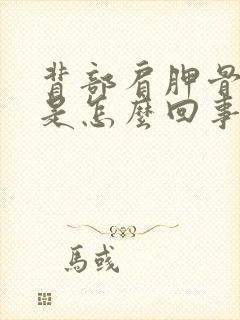 背部肩胛骨
是怎麼回事
馬彧